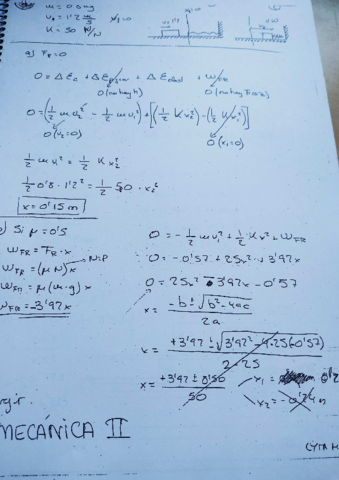 m = 0.8 kg
v₀ = 1'2 m/s x₁=0
K = 50 N/m
a) F_R=0
0 = ΔEc + ΔEpgrav + ΔEelast + W_FR
0 (no hay h) 0 (no hay Froz)
0 = (½ m v₂² - ½ m v₁²) + [(½ K x₂²) - (½ K x₁²)]
0 (v₂=0) 0 (x₁=0)
½ m v₁² = ½ K x₂²
½ 0'8 · 1'2² = ½ 50 · x₂²
x = 0'15 m
b) Si μ = 0'5
W_FR = F_R · x
W_FR = (μ N) x N=P
W_FR = μ (m·g) x
W_FR = -3'92 x
0 = - ½ m v₁² + ½ K x² + W_FR
0 = -0'57 + 25x² + 3'92x
0 = 25x² 3'92x - 0'57
x = -b ± √(b² - 4ac) / 2a
x = +3'92 ± √(3'92² - 4·25(-0'57)) / 2·25
x = +3'92 ± 8'50 / 50
x₁ =
x₂ =
MECÁNICA II